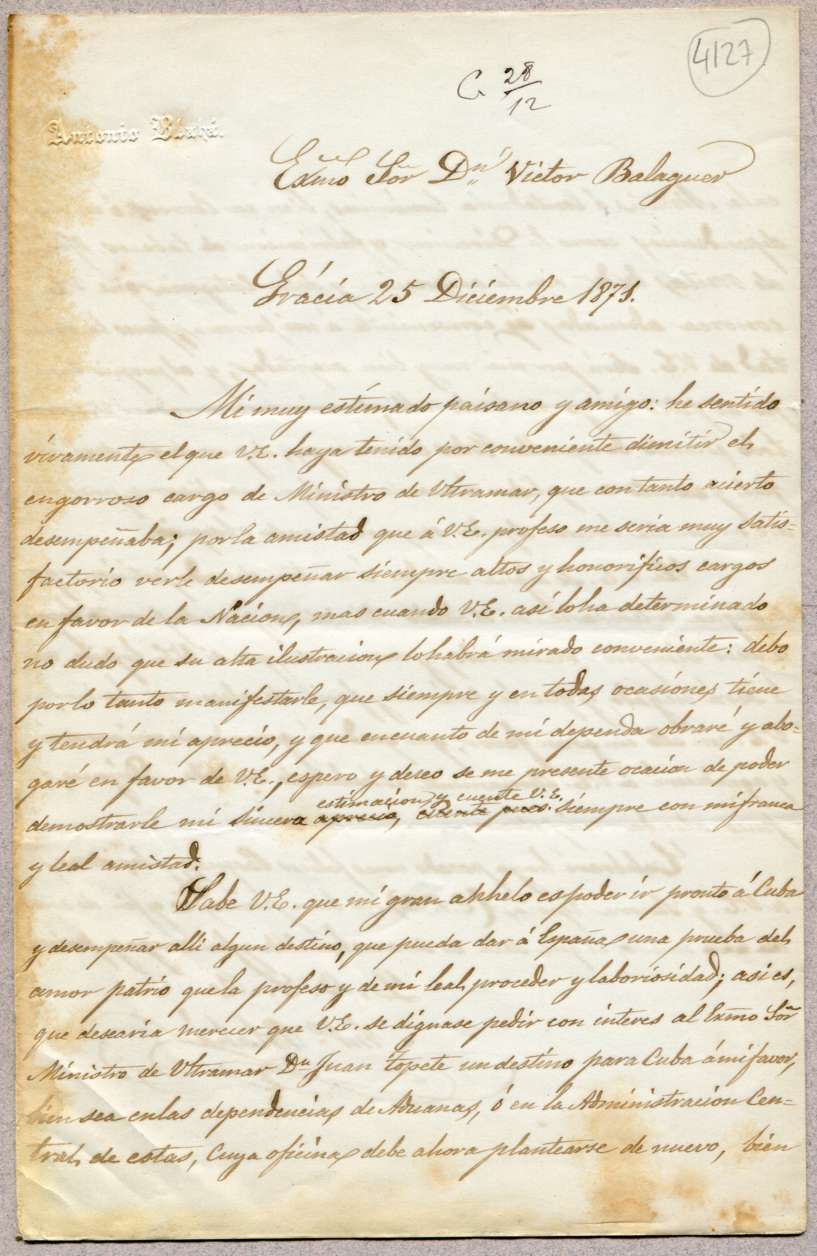 4127
C. 28/12
Antonio
Exmo Sor Dn Victor Balaguer
Grácia 25 Diciembre 1871.
Mi muy estimado paisano y amigo: he sentido
vivamente el que V.E. haya tenido por conveniente dimitir el
engorroso cargo de Ministro de Vtramar, que con tanto acierto
desempeñaba; por la amistad que á V.E. profeso me seria muy satis-
factorio verle desempeñar siempre altos y honorificos cargos
en favor de la Nacion, mas cuando V.E. asi lo ha determinado
no dudo que su alta ilustracion lo habrá mirado conveniente: debo
por lo tanto manifestarle, que siempre y en todas ocasiones tiene
y tendrá mi aprecio, y que en cuanto de mi dependa obraré y abo-
garé en favor de V.E., espero y deseo se me presente ocacion de poder
estimacion y cuente V.E.
demostrarle mi sincera aprecio, pues siempre con mi franca
y leal amistad.
Sabe V.E. que mi gran anhelo es poder ir pronto á Cuba
y desempeñar alli algun destino, que pueda dar á España una prueba del
amor patrio que la profeso y de mi leal proceder y laboriosidad; asi es,
que desearia merecer que V.E. se dignase pedir con interes al Exmo Sor
Ministro de Vtramar Dn Juan Topete un destino para Cuba á mi favor,
bien sea en las dependencias de Aduanas, ó en la Administracion Cen-
tral de estas, cuya oficina debe ahora plantearse de nuevo, bien